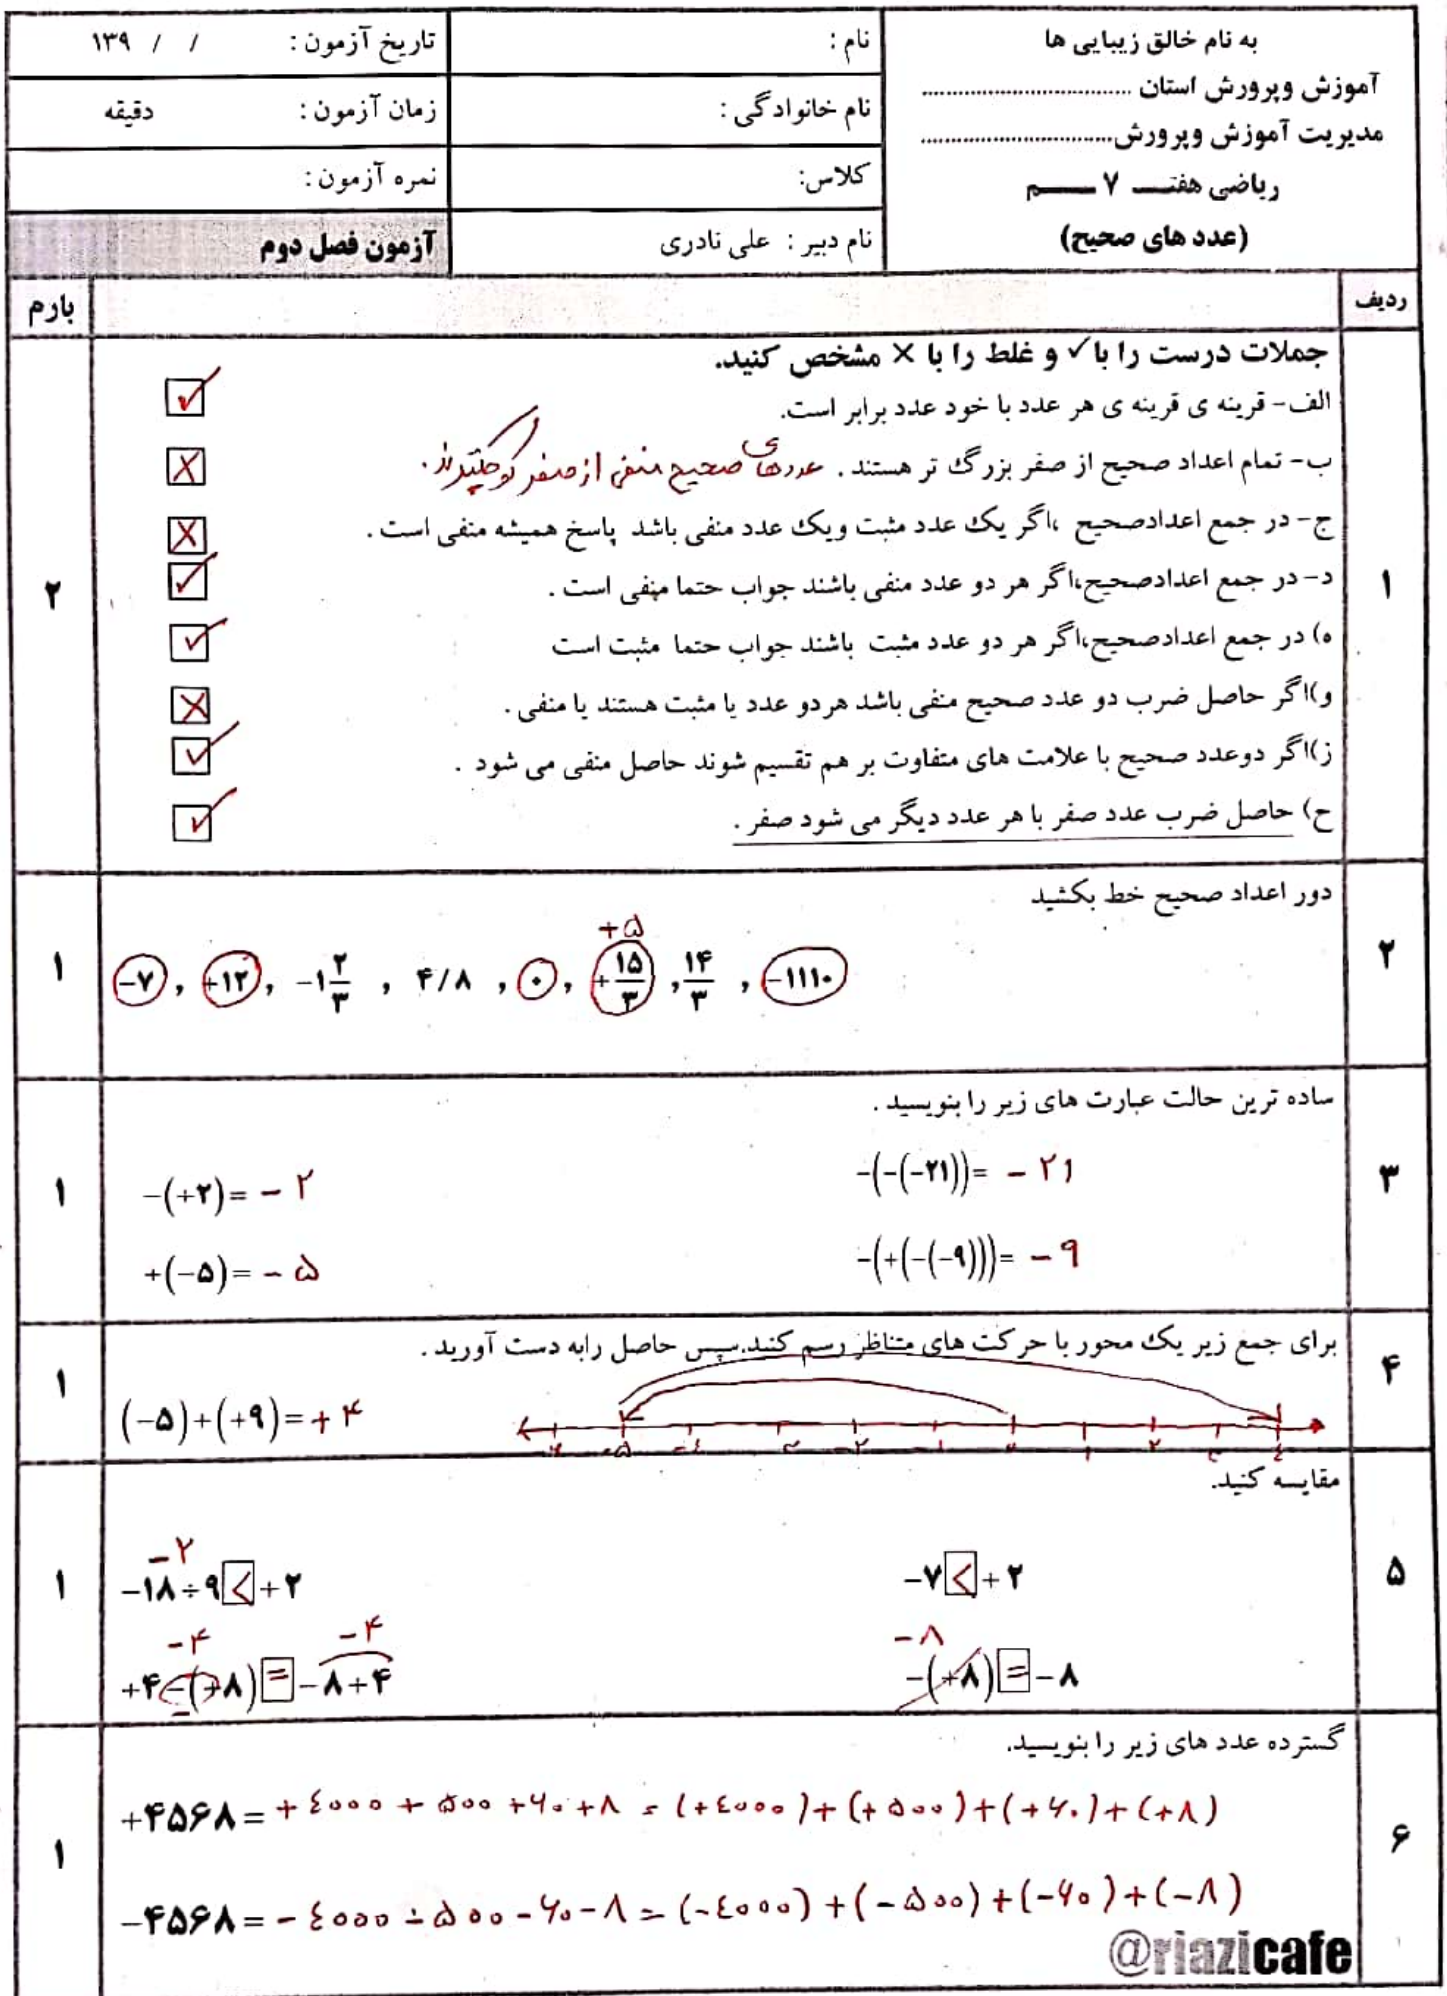 به نام خالق زیبایی ها
آموزش وپرورش استان ................................
مدیریت آموزش وپرورش..............................
ریاضی هفتـــ ۷ ــــم
(عدد های صحیح)
نام :
نام خانوادگی :
کلاس:
نام دبیر : علی نادری
تاریخ آزمون : / / ۱۳۹
زمان آزمون : دقیقه
نمره آزمون :
آزمون فصل دوم
ردیف
بارم
۱
جملات درست را با ✓ و غلط را با × مشخص کنید.
الف- قرینه ی قرینه ی هر عدد با خود عدد برابر است. ✓
ب- تمام اعداد صحیح از صفر بزرگ تر هستند . عددهای صحیح منفی از صفر کوچکترند . ×
ج- در جمع اعدادصحیح ،اگر یک عدد مثبت ویک عدد منفی باشد پاسخ همیشه منفی است . ×
د- در جمع اعدادصحیح،اگر هر دو عدد منفی باشند جواب حتما منفی است . ✓
ه) در جمع اعدادصحیح،اگر هر دو عدد مثبت باشند جواب حتما مثبت است ✓
و)اگر حاصل ضرب دو عدد صحیح منفی باشد هردو عدد یا مثبت هستند یا منفی . ×
ز)اگر دوعدد صحیح با علامت های متفاوت بر هم تقسیم شوند حاصل منفی می شود . ✓
ح) حاصل ضرب عدد صفر با هر عدد دیگر می شود صفر . ✓
۲
۲
دور اعداد صحیح خط بکشید
+۵
-۷ , +۱۲ , -۱ ۲/۳ , ۴/۸ , ۰ , +۱۵/۳ , ۱۴/۳ , -۱۱۱۰
۱
۳
ساده ترین حالت عبارت های زیر را بنویسید .
-(+۲)= - ۲
-(-(-۲۱))= - ۲۱
+(-۵)= - ۵
-(+(-(-۹)))= - ۹
۱
۴
برای جمع زیر یک محور با حرکت های متناظر رسم کنند.سپس حاصل رابه دست آورید .
(-۵)+(+۹)= + ۴
۱
۵
مقایسه کنید.
-۲
-۱۸÷۹ < +۲
-۷ < +۲
-۴ -۴
+۴-(+۸) = -۸+۴
-۸
-(+۸) = -۸
۱
۶
گسترده عدد های زیر را بنویسید.
+۴۵۶۸= +٤۰۰۰ + ۵۰۰ +۶۰ +۸ = (+٤۰۰۰)+(+۵۰۰)+(+۶۰)+(+۸)
-۴۵۶۸= -٤۰۰۰ - ۵۰۰ -۶۰ -۸ = (-٤۰۰۰)+(-۵۰۰)+(-۶۰)+(-۸)
۱
@riazicafe